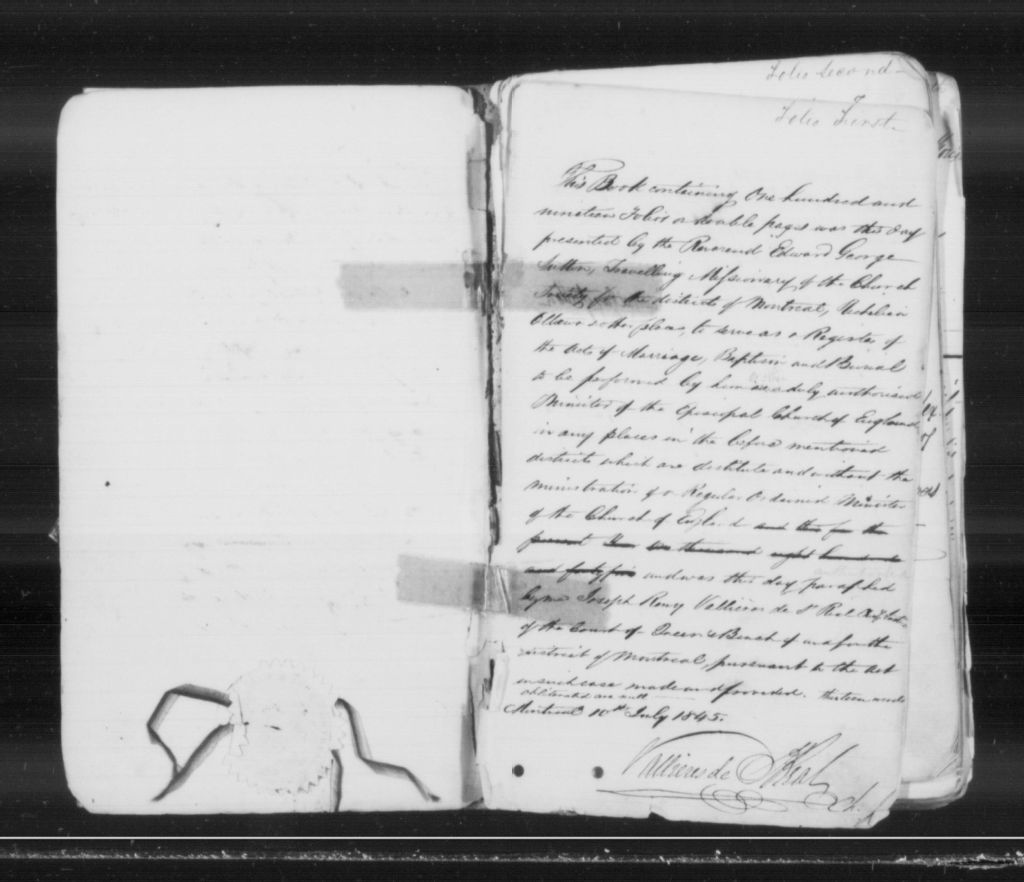 Folio Second
Folio First
This Book containing One hundred and
nineteen Folios or double pages was this day
presented by the Reverend Edward George
Sutton, Travelling Missionary of the Church
Society for the districts of Montreal,
& other places, to serve as a Register of
the Acts of Marriage, Baptism and Burial
to be performed by him as a duly authorised
Minister of the Episcopal Church of England
in any places in the before mentioned
districts which are destitute and without the
ministration of a Regular Ordained Minister
of the Church of England and this for the
present Year one thousand eight hundred
and forty five and was this day paraphed
by me Joseph Remy Vallieres de St Real Chief Justice
of the Court of Queen's Bench of and for the
district of Montreal, pursuant to the Act
in such case made and provided. thirteen words
obliterated are null
Montreal 10th July 1845.
Vallieres de St Real